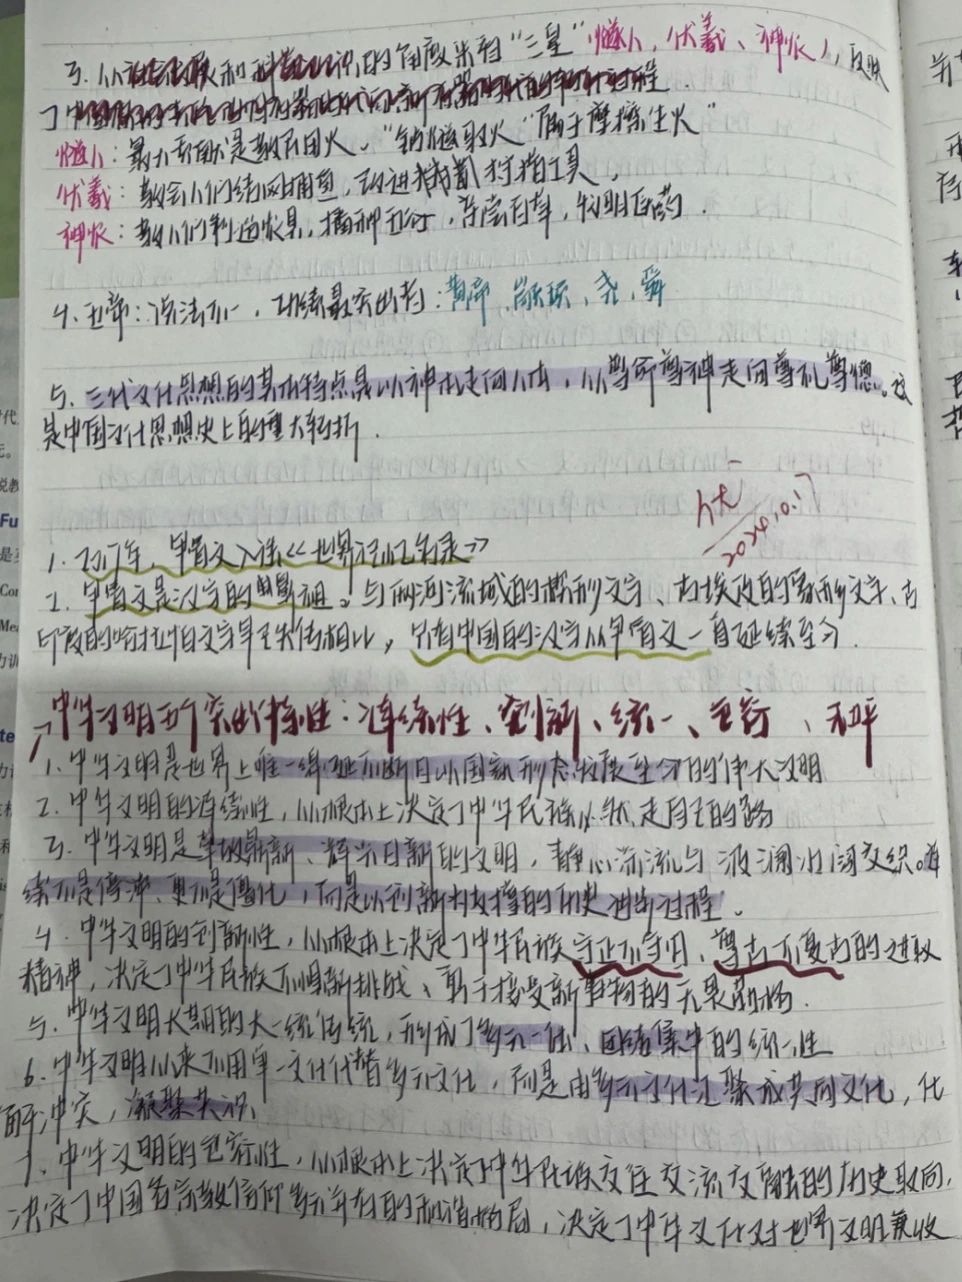 3. 从 和 的角度来看“三皇”(燧人、伏羲、神农),反映
了中
燧人:最大贡献是教民用火。“钻燧取火”属于摩擦生火
伏羲:教会人们结网捕鱼,改进 狩猎工具,
神农:教人们制造农具,播种五谷,尝尝百草,发明医药.
4、五帝:说法不一,功绩最突出的:黄帝、颛顼、尧、舜
5、三代文化思想的基本特点是从神本走向人本,从尊命尊神走向尊礼尊德。这
是中国文化思想史上的重大转折.
优
2024.10.17
1. 2017年,甲骨文入选《世界记忆名录》
2. 甲骨文是汉字的 祖。与两河流域的楔形文字、古埃及的象形文字、古
印度的哈拉帕文字早已失传相比,只有中国的汉字从甲骨文一直延续至今.
中华文明五个突出特性:连续性、创新、统一、包容、和平
1. 中华文明是世界上唯一绵延不断且以国家形态发展至今的伟大文明
2. 中华文明的连续性,从根本上决定了中华民族必然走自己的路
3. 中华文明是革故鼎新、辉光日新的文明,静水深流与波澜壮阔交织。连
续不是停滞、更不是僵化,而是以创新为支撑的历史进步过程。
4. 中华文明的创新性,从根本上决定了中华民族守正不守旧、尊古不复古的进取
精神,决定了中华民族不惧新挑战、勇于接受新事物的无畏品格.
5. 中华文明长期的大一统传统,形成了多元一体、团结集中的统一性
6. 中华文明从来不用单一文化代替多元文化,而是由多元文化汇聚成共同文化,化
解冲突,凝聚共识、
7、中华文明的包容性,从根本上决定了中华民族交往交流交融的历史取向,
决定了中国各宗教信仰多元并存的和谐格局,决定了中华文化对世界文明兼收